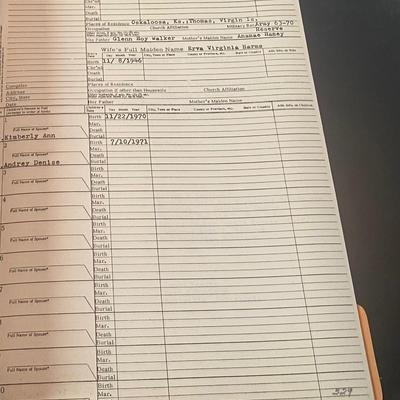 Chr'nd
Mar.
Death
Burial
Places of Residence Oskaloosa, Ks., Thomas, Virgin Is.
Occupation Church Affiliation Military Rec. Army 63-70
Reserve
His Father Glenn Roy Walker Mother's Maiden Name
Wife's Full Maiden Name Erva Virginia Harms
Day Month Year City, Town or Place County or Province, etc. State or Country Add. Info. on Wife
Birth 11/ 8/1946
Chr'nd
Death
Burial
Compiler Places of Residence
Address Occupation if other than Housewife Church Affiliation
City, State
Date Her Father Mother's Maiden Name
Day Month Year City, Town or Place County or Province, etc. State or Country Add. Info. on Children
1 Birth 11/22/1970
Kimberly Ann Mar.
Full Name of Spouse* Death
Burial
2 Birth 7/10/1971
Andrey Denise Mar.
Full Name of Spouse* Death
Burial
3 Birth
Mar.
Full Name of Spouse* Death
Burial
4 Birth
Mar.
Full Name of Spouse* Death
Burial
5 Birth
Mar.
Full Name of Spouse* Death
Burial
6 Birth
Mar.
Full Name of Spouse* Death
Burial
7 Birth
Mar.
Full Name of Spouse* Death
Burial
Birth
Mar.
Full Name of Spouse* Death
Burial
Birth
Mar.
Full Name of Spouse* Death
Burial
0 Birth
Mar.
329